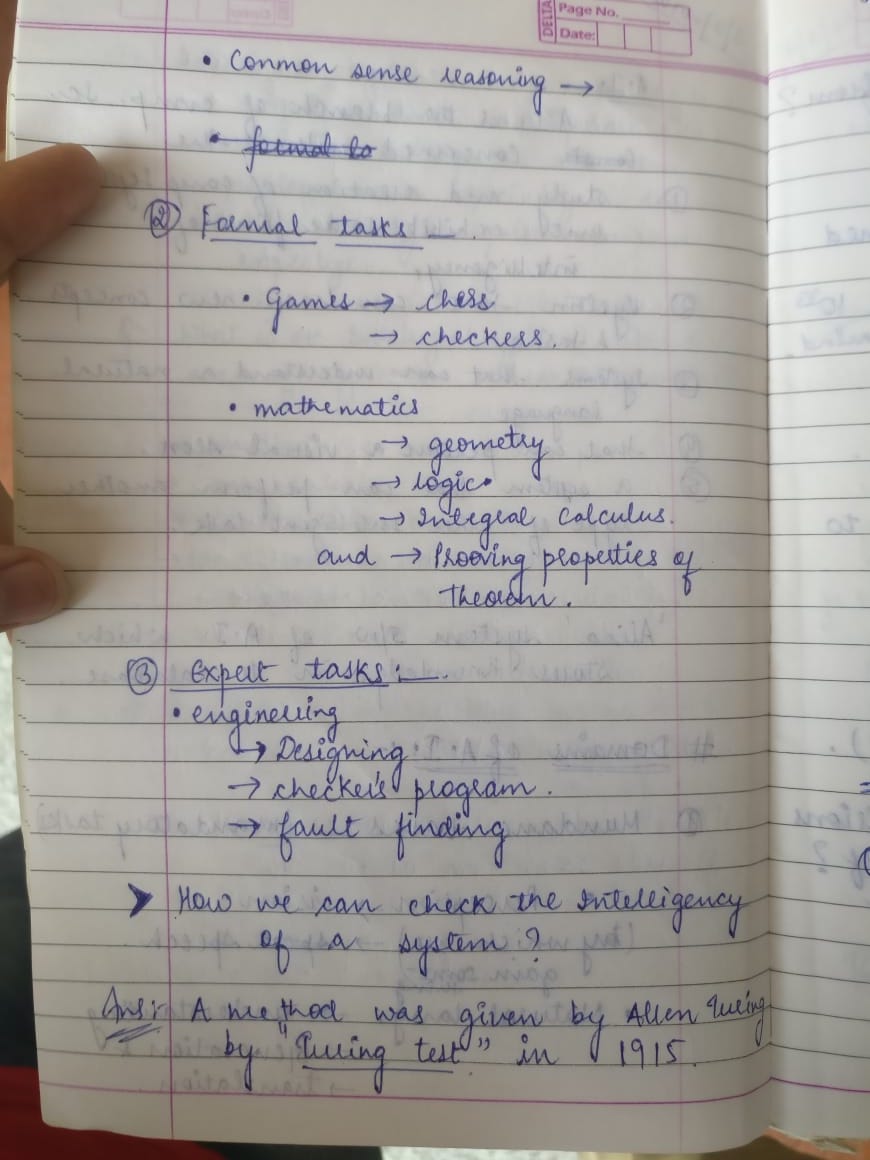 DELTA
Page No.
Date:
• Common sense reasoning →
• formal to
② Formal tasks —.
• Games → chess
→ checkers.
• mathematics
→ geometry
→ logic•
→ Integral Calculus.
and → Prooving properties of
theorem.
③ Expert tasks:—.
• engineering
↳ Designing
→ checker's program.
→ fault finding
➤ How we can check the Intelligency
of a system?
Ans:- A method was given by Allen Turing
by "Turing test" in 1915.